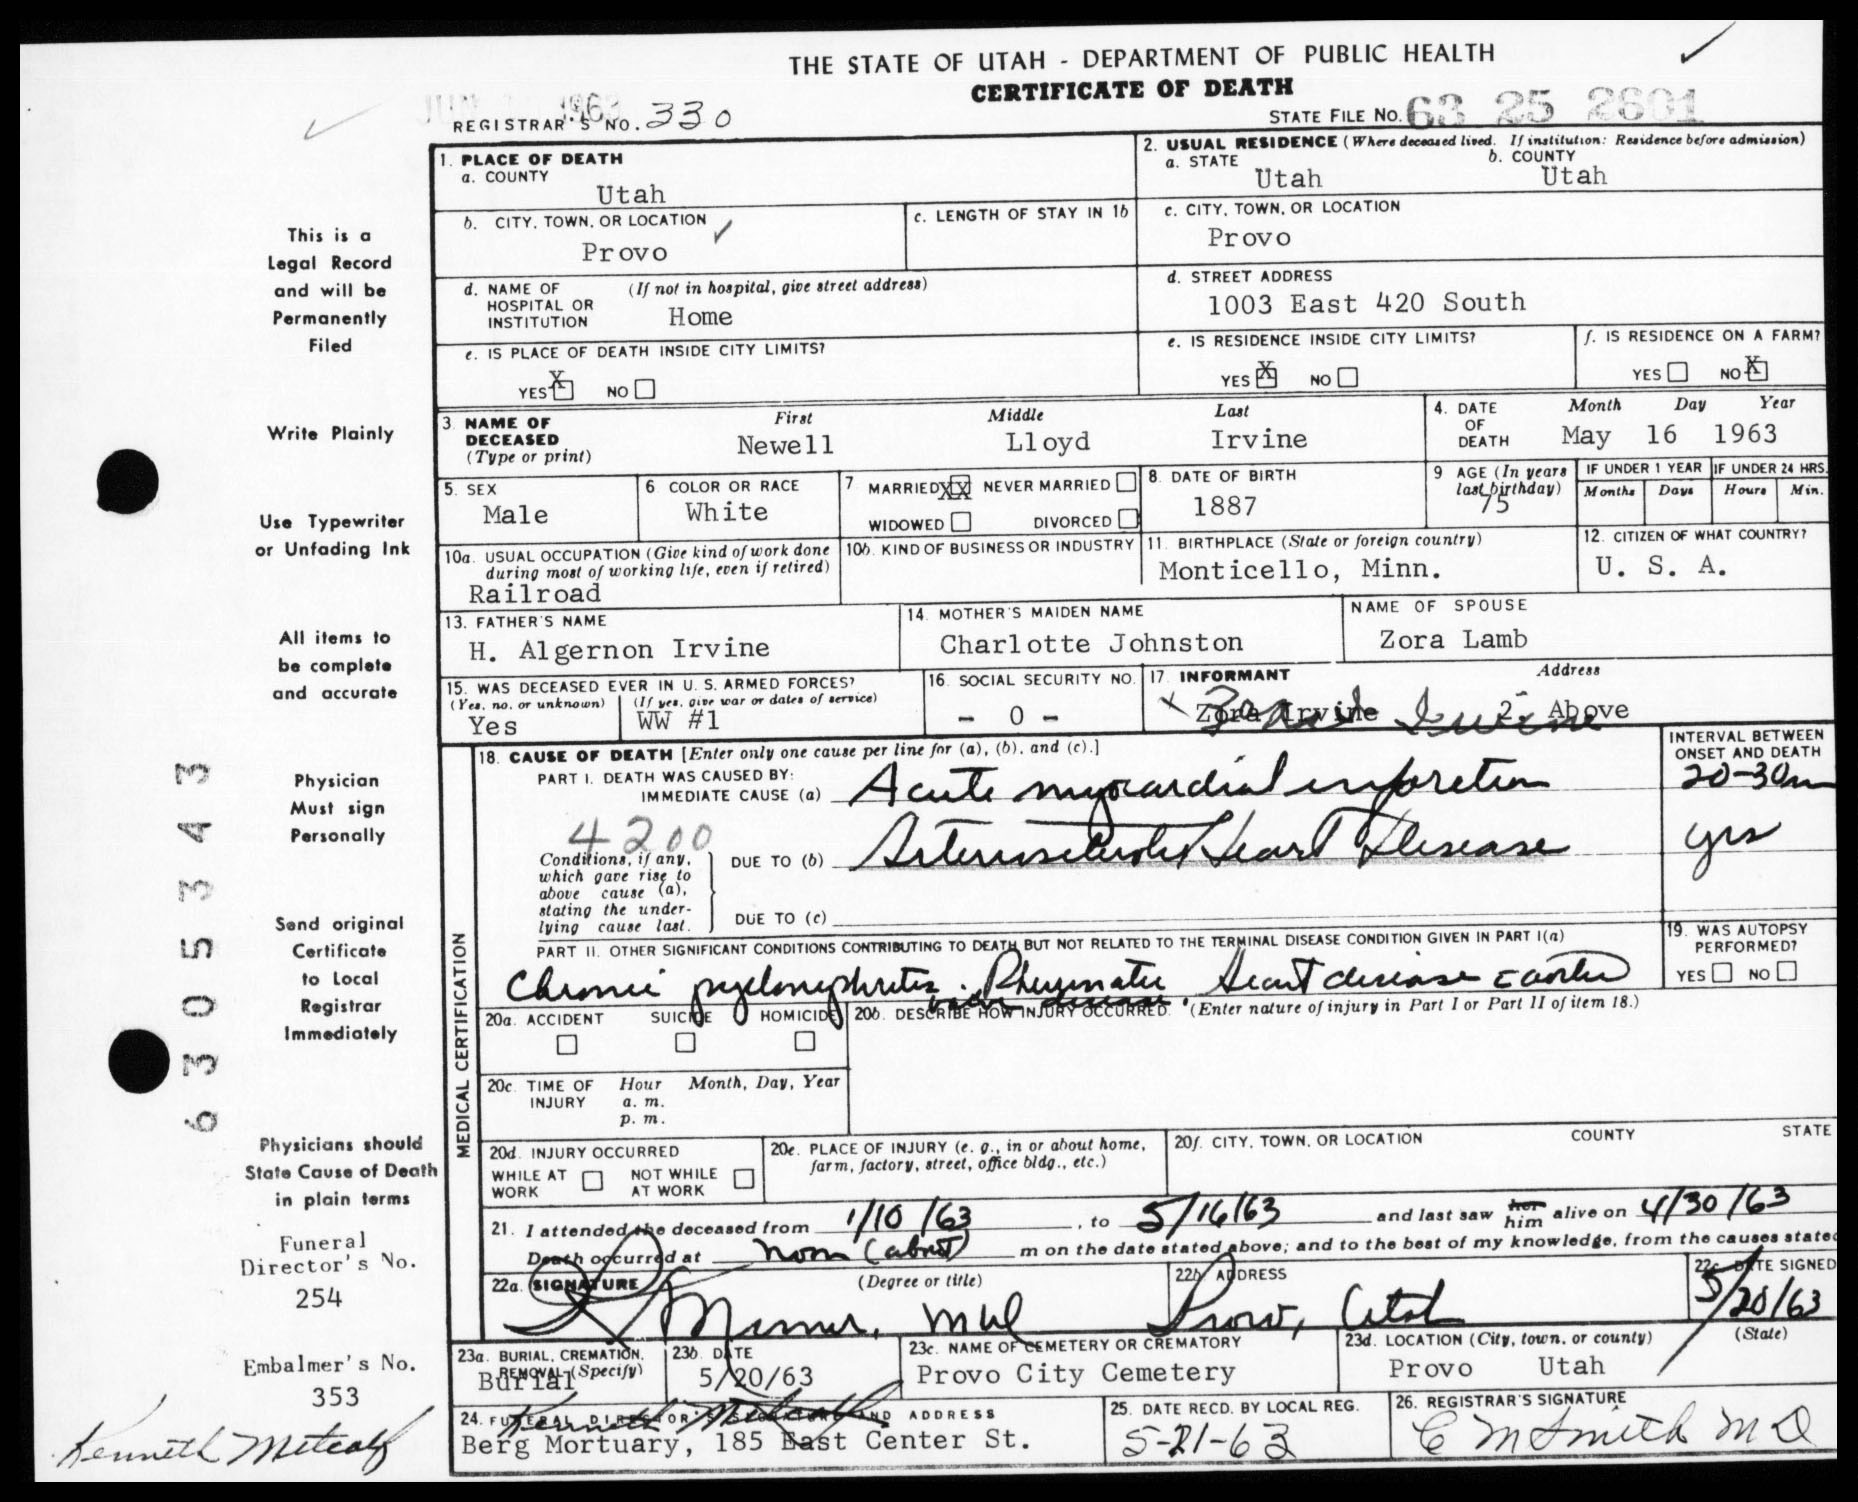 THE STATE OF UTAH - DEPARTMENT OF PUBLIC HEALTH
CERTIFICATE OF DEATH
JUN 1963
REGISTRAR'S NO. 330
STATE FILE NO. 63 25 2601
This is a
Legal Record
and will be
Permanently
Filed
Write Plainly
Use Typewriter
or Unfading Ink
All items to
be complete
and accurate
Physician
Must sign
Personally
Send original
Certificate
to Local
Registrar
Immediately
Physicians should
State Cause of Death
in plain terms
Funeral
Director's No.
254
Embalmer's No.
353
Kenneth Metcalf
6305343
1. PLACE OF DEATH
a. COUNTY
Utah
b. CITY, TOWN, OR LOCATION
Provo
c. LENGTH OF STAY IN 1b
d. NAME OF HOSPITAL OR INSTITUTION
(If not in hospital, give street address)
Home
e. IS PLACE OF DEATH INSIDE CITY LIMITS?
YES X NO
2. USUAL RESIDENCE (Where deceased lived. If institution: Residence before admission)
a. STATE
Utah
b. COUNTY
Utah
c. CITY, TOWN, OR LOCATION
Provo
d. STREET ADDRESS
1003 East 420 South
e. IS RESIDENCE INSIDE CITY LIMITS?
YES X NO
f. IS RESIDENCE ON A FARM?
YES NO X
3. NAME OF DECEASED (Type or print)
First Middle Last
Newell Lloyd Irvine
4. DATE OF DEATH
Month Day Year
May 16 1963
5. SEX
Male
6. COLOR OR RACE
White
7. MARRIED XX NEVER MARRIED
WIDOWED DIVORCED
8. DATE OF BIRTH
1887
9 AGE (In years last birthday)
75
IF UNDER 1 YEAR
Months Days
IF UNDER 24 HRS.
Hours Min.
10a. USUAL OCCUPATION (Give kind of work done during most of working life, even if retired)
Railroad
10b. KIND OF BUSINESS OR INDUSTRY
11. BIRTHPLACE (State or foreign country)
Monticello, Minn.
12. CITIZEN OF WHAT COUNTRY?
U. S. A.
13. FATHER'S NAME
H. Algernon Irvine
14. MOTHER'S MAIDEN NAME
Charlotte Johnston
NAME OF SPOUSE
Zora Lamb
15. WAS DECEASED EVER IN U. S. ARMED FORCES?
(Yes, no, or unknown) (If yes, give war or dates of service)
Yes WW #1
16. SOCIAL SECURITY NO.
- 0 -
17. INFORMANT Address
Zora Irvine 2- Above
18. CAUSE OF DEATH [Enter only one cause per line for (a), (b), and (c).]
INTERVAL BETWEEN ONSET AND DEATH
PART I. DEATH WAS CAUSED BY:
IMMEDIATE CAUSE (a) Acute myocardial infarction 20-30m
4200
Conditions, if any, which gave rise to above cause (a), stating the underlying cause last.
DUE TO (b) Arteriosclerotic Heart Disease yrs
DUE TO (c)
PART II. OTHER SIGNIFICANT CONDITIONS CONTRIBUTING TO DEATH BUT NOT RELATED TO THE TERMINAL DISEASE CONDITION GIVEN IN PART I(a)
Chronic pyelonephritis. Rheumatic Heart disease c aortic
valve disease.
19. WAS AUTOPSY PERFORMED?
YES NO
20a. ACCIDENT SUICIDE HOMICIDE
20b. DESCRIBE HOW INJURY OCCURRED. (Enter nature of injury in Part I or Part II of item 18.)
20c. TIME OF INJURY
Hour Month, Day, Year
a. m.
p. m.
20d. INJURY OCCURRED
WHILE AT WORK NOT WHILE AT WORK
20e. PLACE OF INJURY (e. g., in or about home, farm, factory, street, office bldg., etc.)
20f. CITY, TOWN, OR LOCATION COUNTY STATE
MEDICAL CERTIFICATION
21. I attended the deceased from 1/10/63, to 5/16/63 and last saw her him alive on 4/30/63
Death occurred at noon (about) m on the date stated above; and to the best of my knowledge, from the causes stated
22a. SIGNATURE (Degree or title)
MD
22b. ADDRESS
Provo, Utah
22c. DATE SIGNED
5/20/63
23a. BURIAL, CREMATION, REMOVAL (Specify)
Burial
23b. DATE
5/20/63
23c. NAME OF CEMETERY OR CREMATORY
Provo City Cemetery
23d. LOCATION (City, town, or county) (State)
Provo Utah
24. FUNERAL DIRECTOR'S SIGNATURE AND ADDRESS
Kenneth Metcalf
Berg Mortuary, 185 East Center St.
25. DATE RECD. BY LOCAL REG.
5-21-63
26. REGISTRAR'S SIGNATURE
C M Smith MD